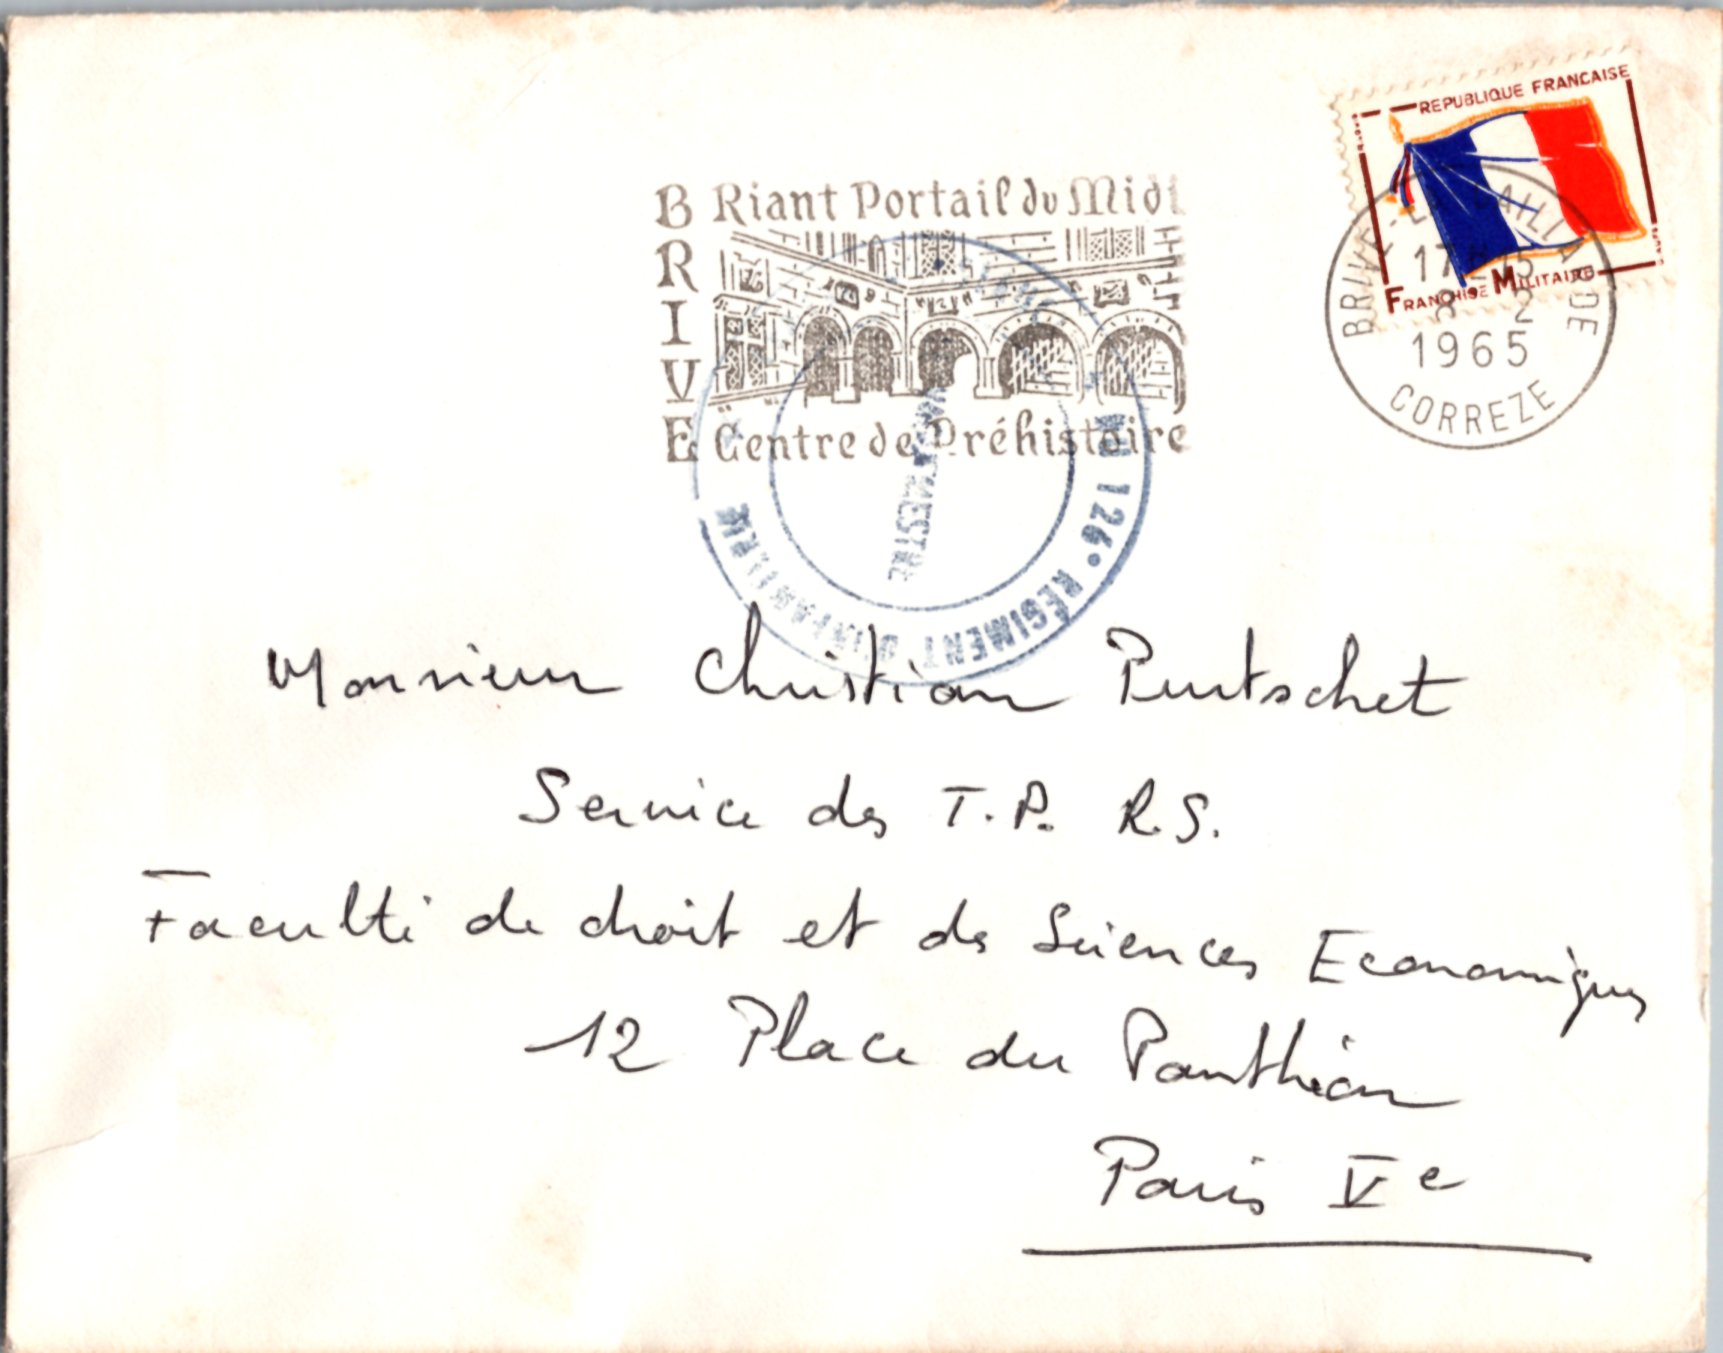 REPUBLIQUE FRANCAISE
FRANCHISE MILITAIRE
BRIVE-LA-GAILLARDE
17
8 2
1965
CORREZE
BRIVE
Riant Portail du Midi
Centre de Préhistoire
126e RÉGIMENT D'INFANTERIE
VAGUEMESTRE
Monsieur Christian Purtschet
Service des T.P. R.S.
Faculté de droit et des Sciences Economiques
12 Place du Panthéon
Paris Ve